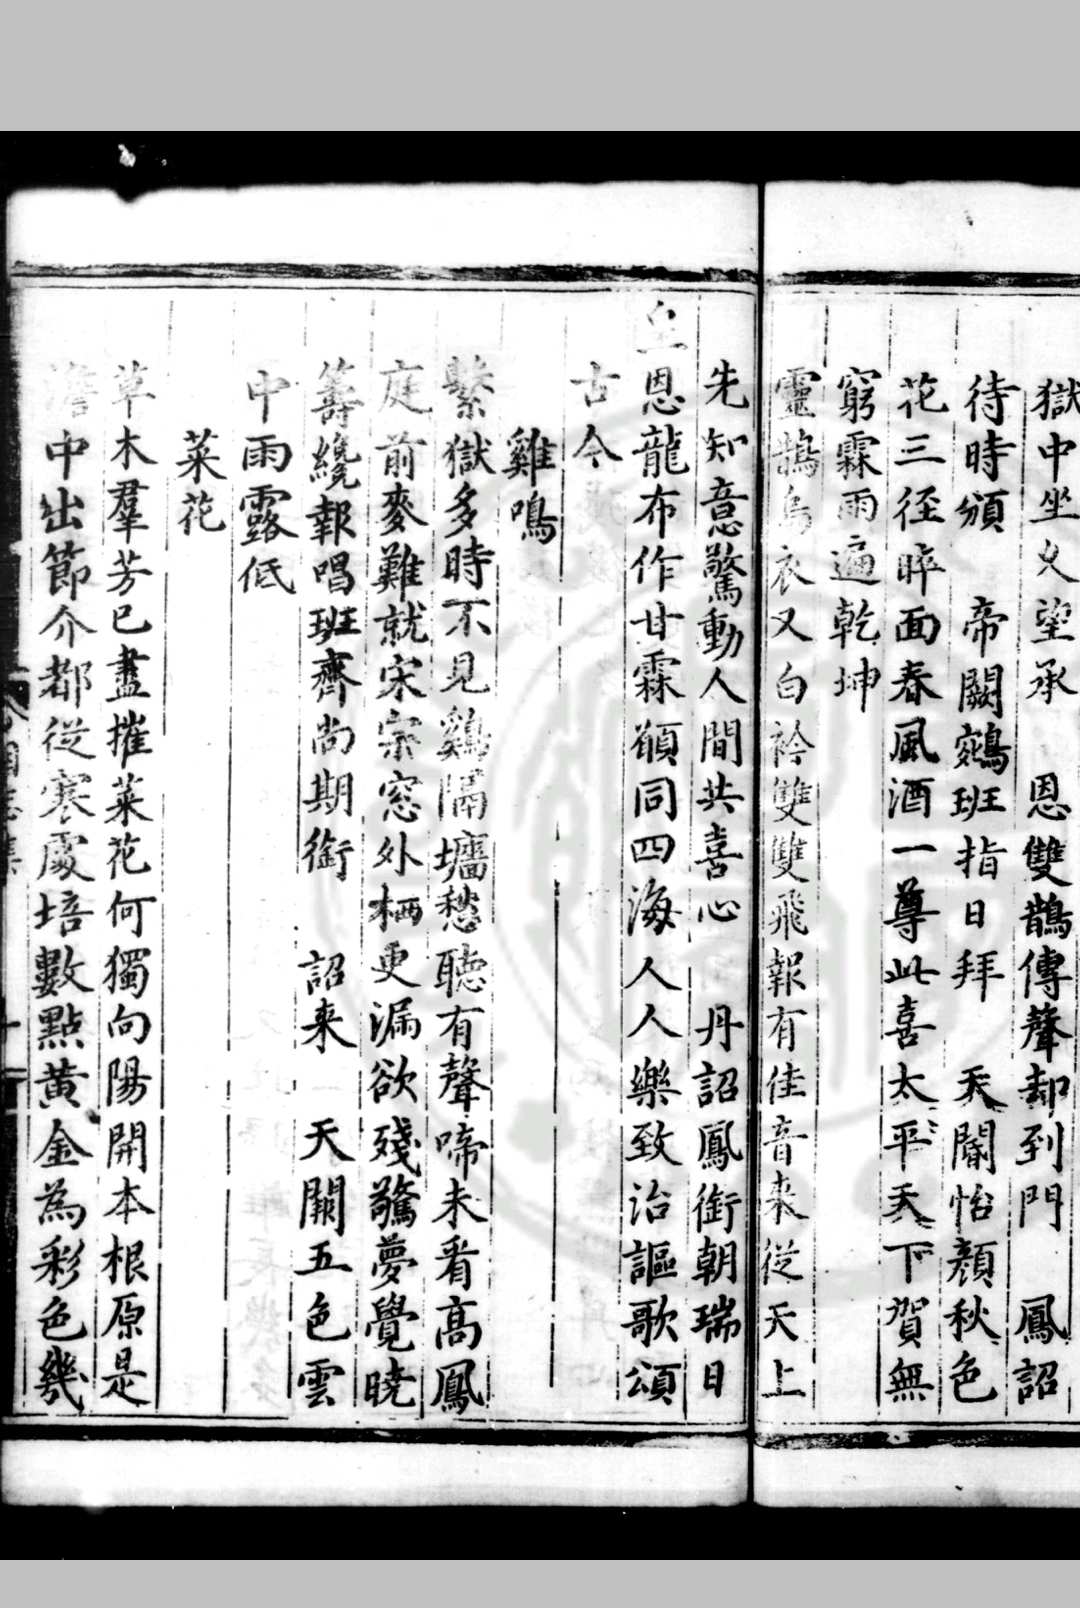 獄中坐久望承　恩雙鵲傳聲却到門　鳳詔
待時頒　帝闕鵷班指日拜　天閽怡顏秋色
花三徑晬面春風酒一尊此喜太平天下賀無
窮霖雨遍乾坤
靈鵲烏衣又白衿雙雙飛報有佳音来從天上
先知意驚動人間共喜心　丹詔鳳銜朝瑞日
皇恩龍布作甘霖願同四海人人樂致治謳歌頌
古今
雞鳴
繫獄多時不見鷄隔墻愁聽有聲啼未看高鳳
庭前麥難就宋宗窓外栖更漏欲殘驚夢覺曉
籌纔報唱班齊尚期銜　詔来　天闕五色雲
中雨露低
菜花
草木羣芳已盡摧菜花何獨向陽開本根原是
澹中出節介都從寒處培數點黄金為彩色幾